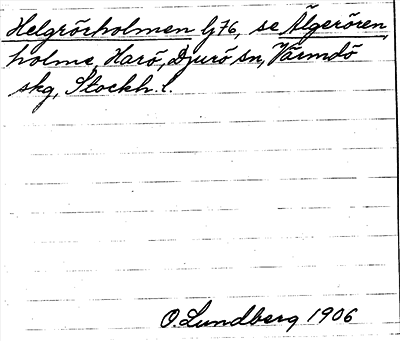 Helgrörholmen G76, se Älgerören,
holme, Harö, Djurö sn, Värmdö
skg, Stockh. l.
O. Lundberg 1906